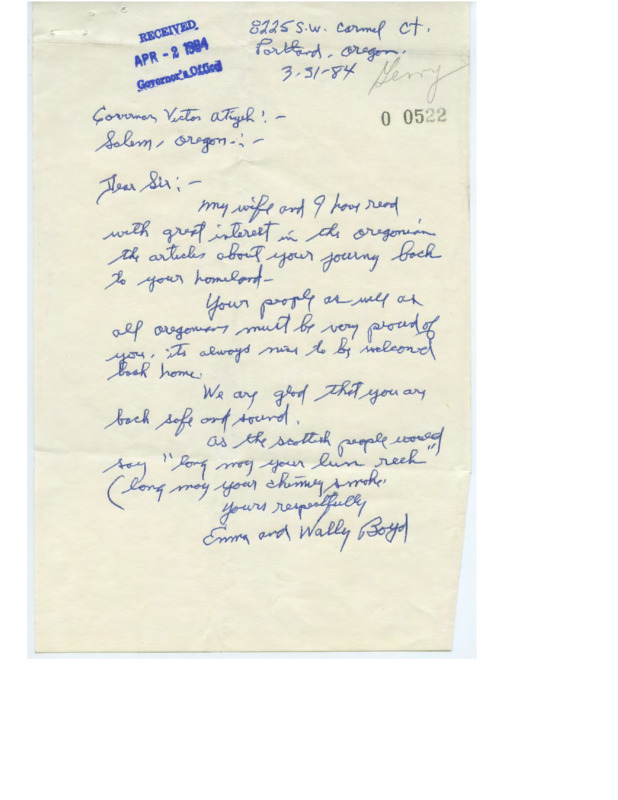 RECEIVED
APR - 2 1984
Governor's Office
8225 S.W. Carmel Ct.
Portland, Oregon.
3-31-84
Gerry
0 0522
Governor Victor Atiyeh! -
Salem, Oregon -: -
Dear Sir; -
My wife and I have read
with great interest in the Oregonian
the articles about your journy back
to your homeland -
Your people as well as
all oregonians must be very proud of
you. its always nice to be welcomed
back home.
We are glad that you are
back safe and sound.
As the scottish people would
say "long may your lum reek"
(long may your chimney smoke.
Yours respectfully
Emma and Wally Boyd